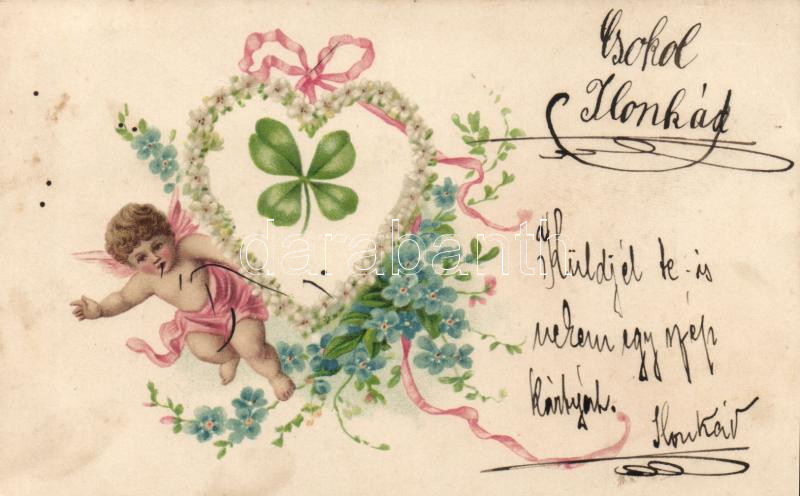 Csokol
Ilonkád
Küldjél te is
nekem egy szép
kártyát.
Ilonkád
darabanth